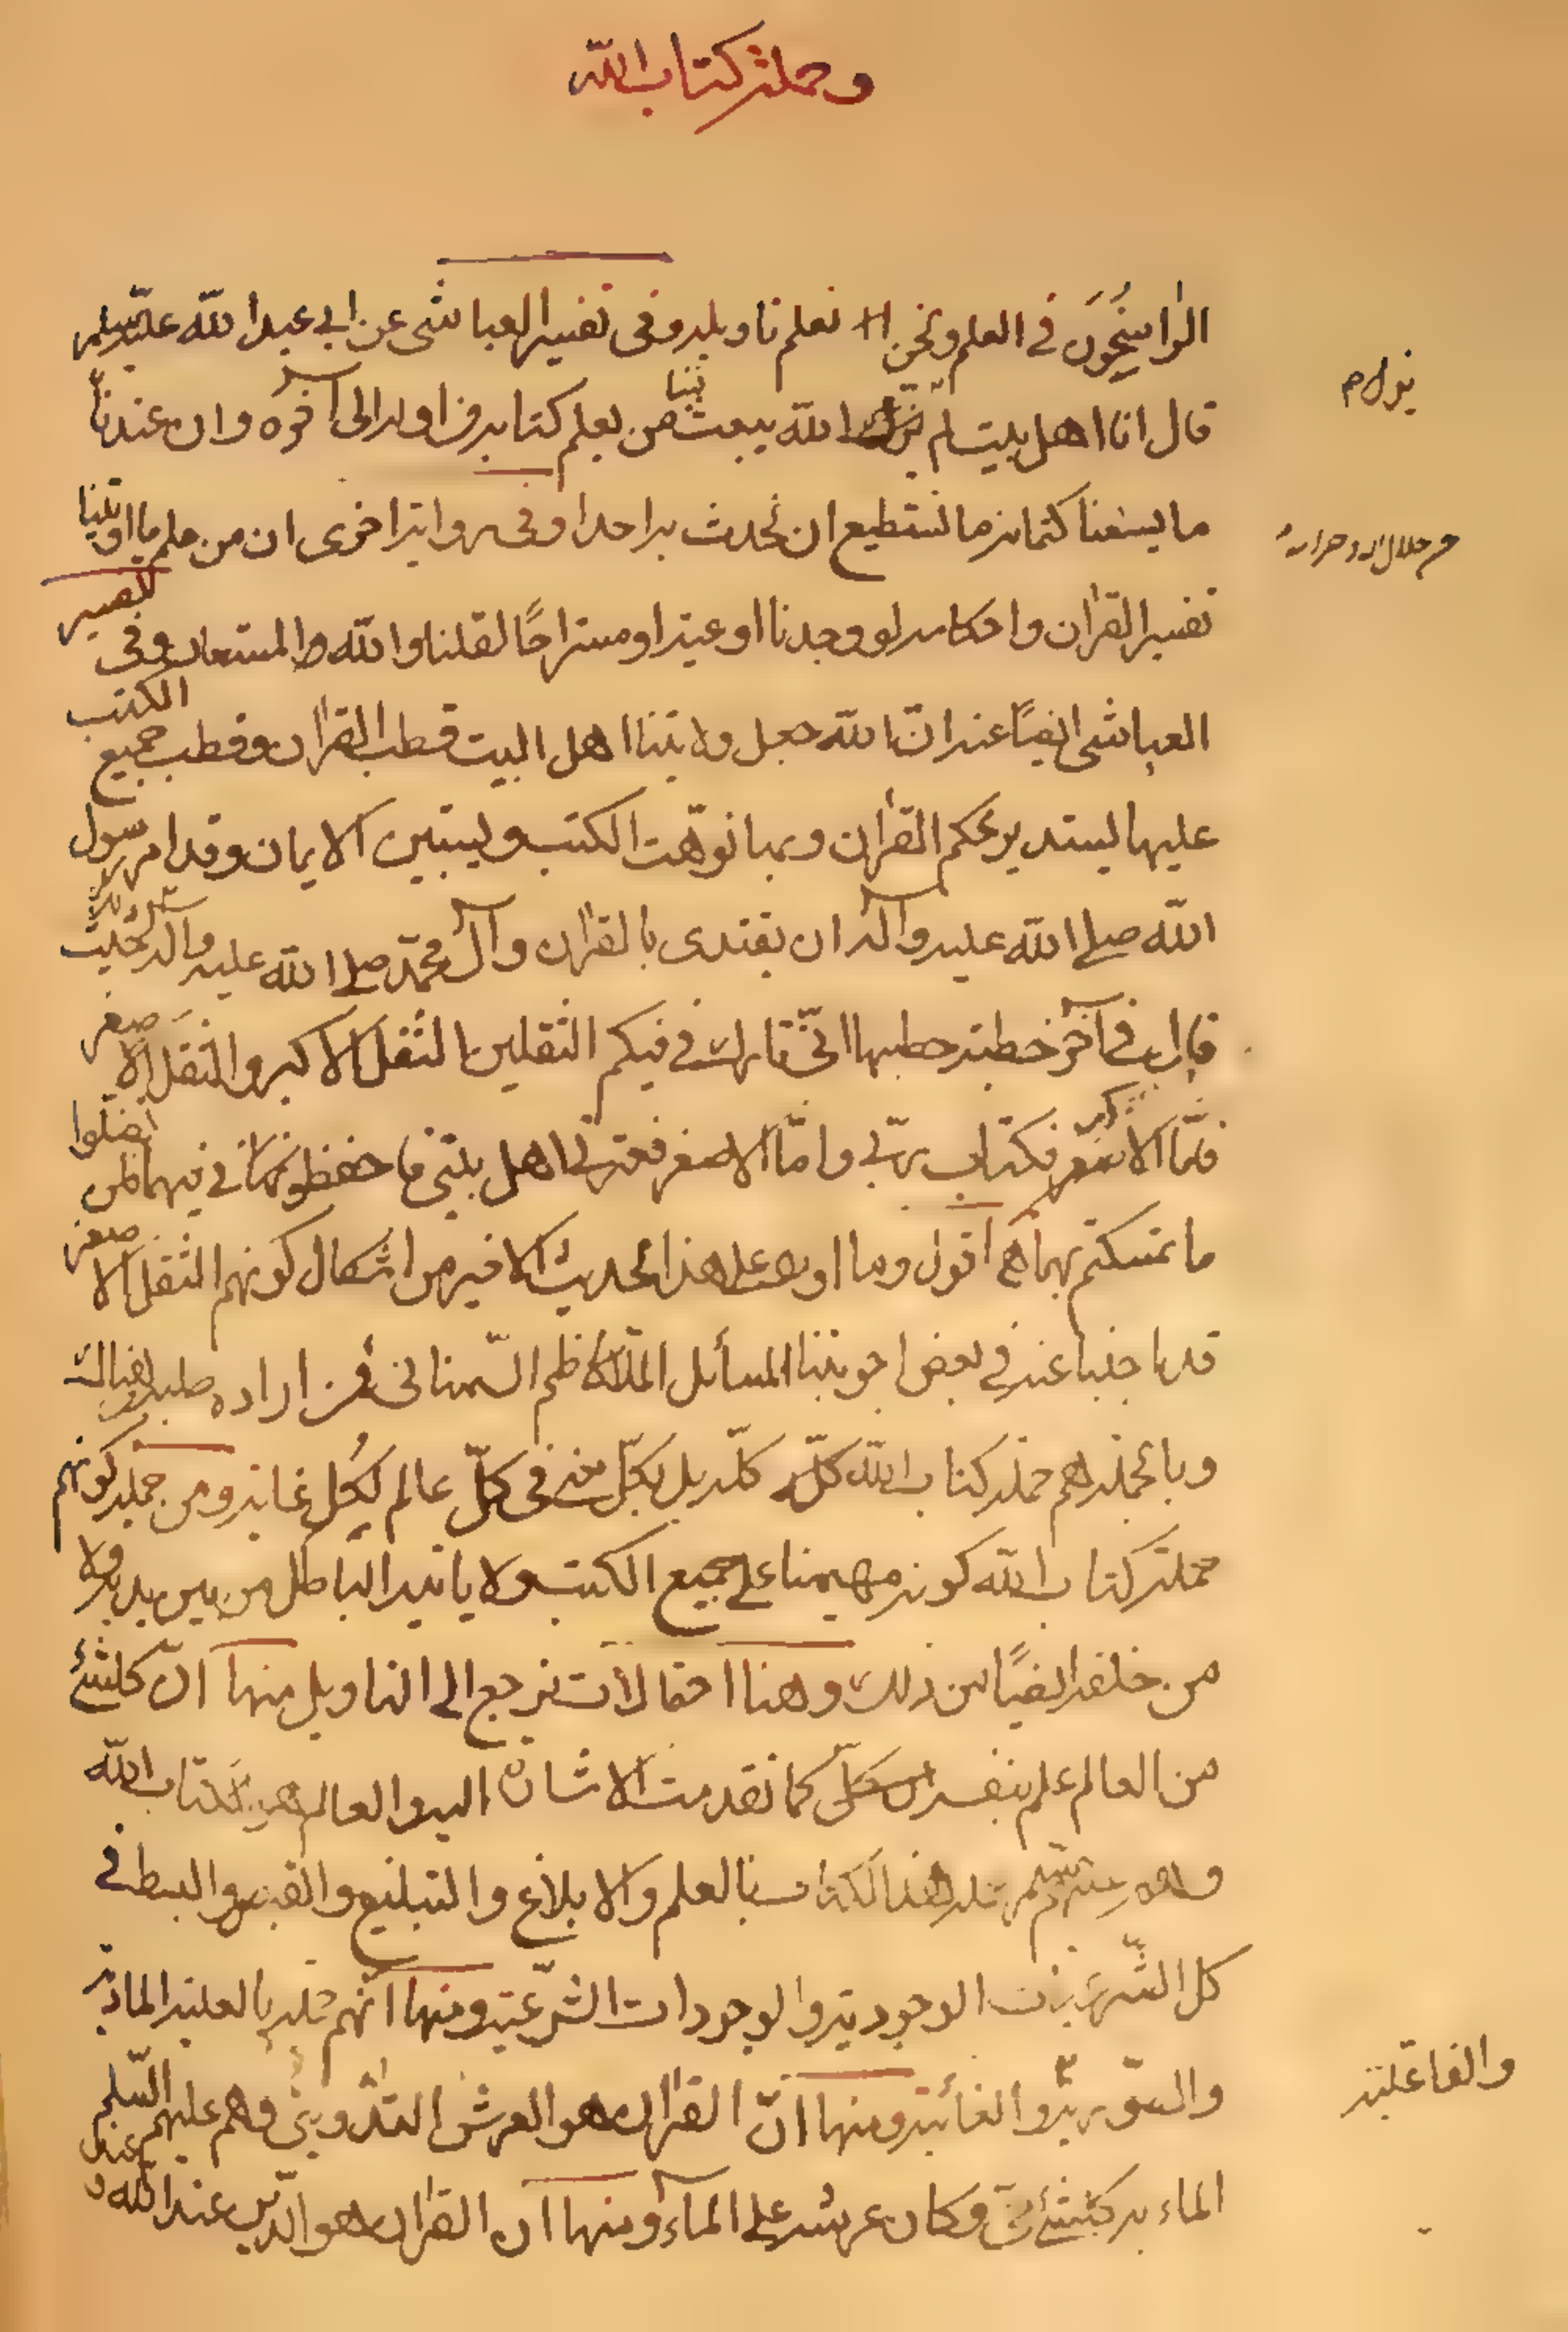 وحملة كتاب الله
الراسخون في العلم ونحن نعلم تاويله وفى تفسير العياشى عن ابي عبد الله عليه السلم
قال انا اهل بيت لم يزل الله يبعث منا من يعلم كتابه من اوله الى آخره وان عندنا
يزل م
من حلال الله وحرامه
ما يسعنا كتمانه ما نستطيع ان نحدث به احدا وفى رواية اخرى ان من علم ما اوتينا
تفسير القرآن واحكامه لو وجدنا اوعية او مستراحًا لقلنا والله المستعان وفى تفسير
العياشى ايضًا عنه انّ الله جعل ولايتنا اهل البيت قطب القرآن وقطب جميع الكتب
عليها يستدير محكم القرآن وبها نوّهت الكتب ويستبين الايمان وقد امر رسول
الله صلى الله عليه وآله ان يقتدى بالقرآن وآل محمّد صلى الله عليه وآله حيث
قال في آخر خطبة خطبها انّي تارك فيكم الثقلين الثقل الاكبر والثقل الاصغر
فامّا الاكبر فكتاب ربّي وامّا الاصغر فعترتي اهل بيتي فاحفظوني فيهما لن تضلّوا
ما تمسكتم بهما اقول وما اورد على هذا الحديث الاخير من اشكال كونهم الثقل الاصغر
قد اجبنا عنه في بعض اجوبتنا لمسائل الملا كاظم السّمنانى فمن اراده طلبه هناك
وبالجملة هم حملة كتاب الله كلّه بكلّ معنى فى كلّ عالم لكلّ غاية ومن جملة كونهم
حملة كتاب الله كونه مهيمنا على جميع الكتب ولا ياتيه الباطل من بين يديه ولا
من خلفه ايضًا من ذلك وهنا احتمالات ترجع الى التاويل منها انّ كلشئ
من العالم علم بنفسه كما تقدمت الاشارة اليه والعالم كتاب الله
وهم حملة هذا الكتاب بالعلم والابلاغ والتبليغ والقبض والبسط في
كل الوجودية والوجودات الشرّعية ومنها انّهم حملته بالعلية المادية
والفاعلية
والصّورية والغائية ومنها انّ القرآن هو العرش التدويني وهم عليهم السّلم
الماء به كلشئ حيّ وكان عرشه على الماء ومنها ان القرآن هو الدّين عند الله و عند